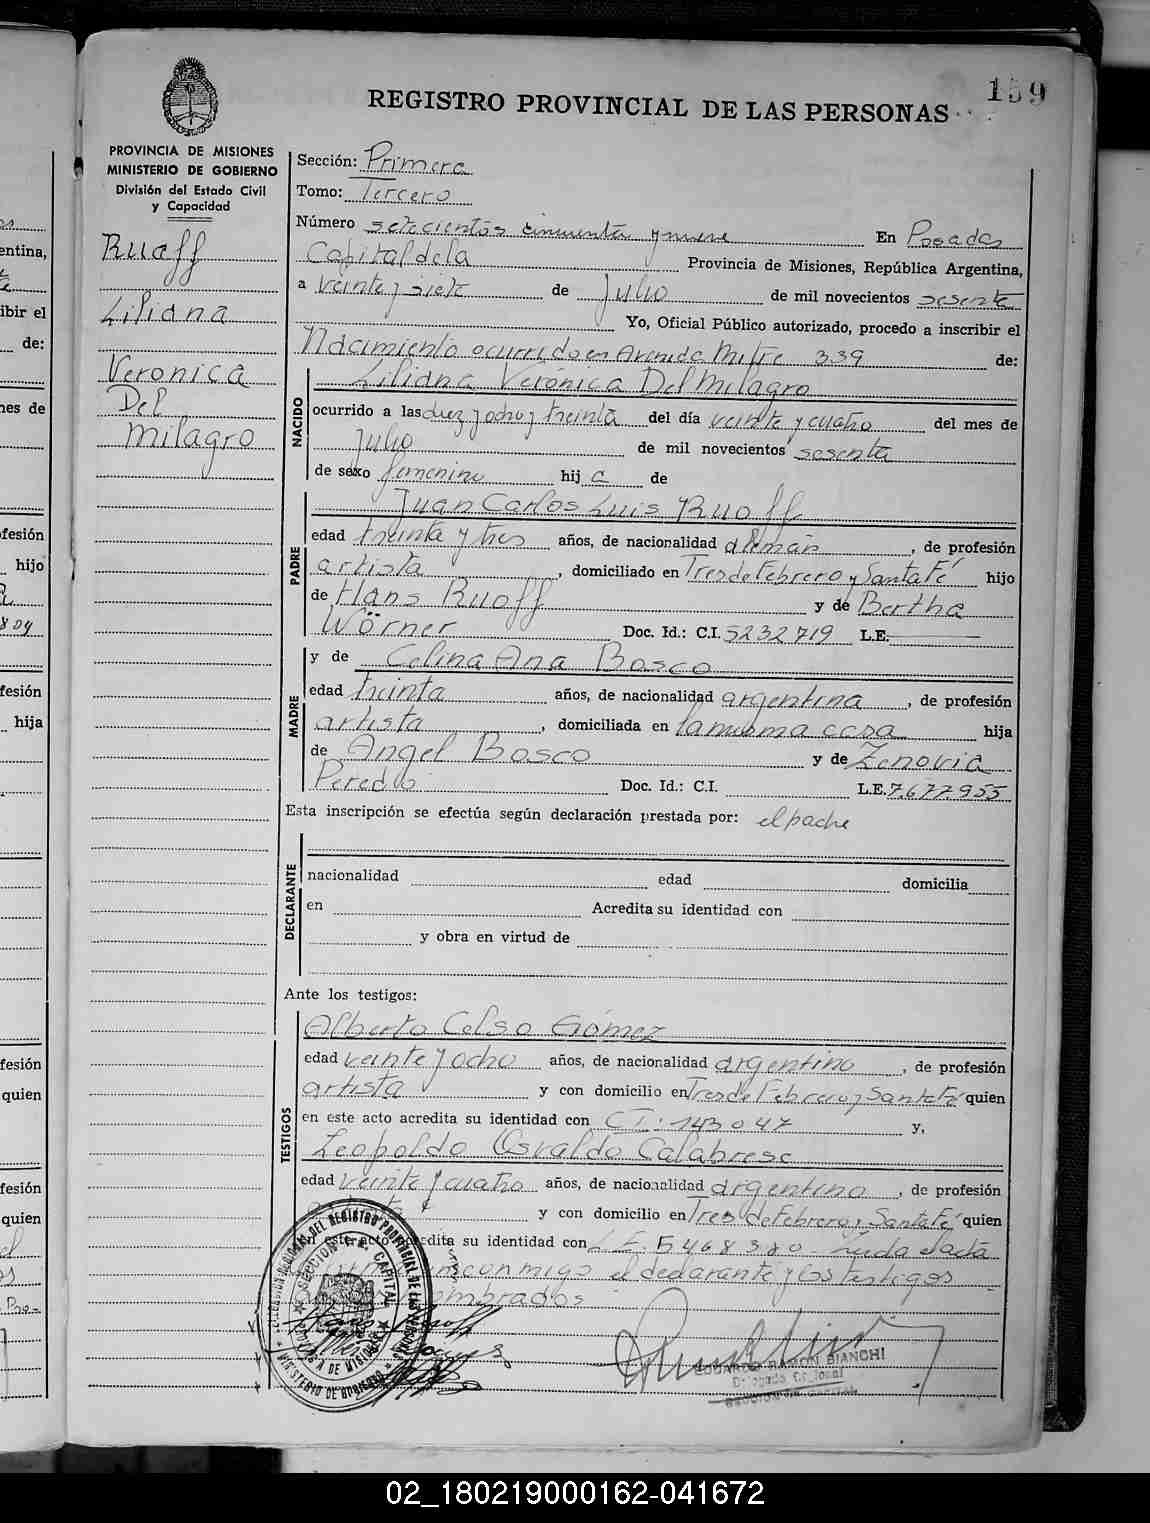 159
REGISTRO PROVINCIAL DE LAS PERSONAS
PROVINCIA DE MISIONES
MINISTERIO DE GOBIERNO
División del Estado Civil
y Capacidad
Ruoff
Liliana
Veronica
Del
Milagro
Sección: Primera
Tomo: Tercero
Número setecientos cincuenta y nueve En Posadas
Capital de la Provincia de Misiones, República Argentina,
a veinte y siete de Julio de mil novecientos sesenta
Yo, Oficial Público autorizado, procedo a inscribir el
Nacimiento ocurrido en Avenida Mitre 339 de:
NACIDO
Liliana Verónica Del Milagro
ocurrido a las diez y ocho y treinta del día veinte y cuatro del mes de
Julio de mil novecientos sesenta
de sexo femenino hij a de
PADRE
Juan Carlos Luis Ruoff
edad treinta y tres años, de nacionalidad alemán, de profesión
artista, domiciliado en Tres de Febrero y Santa Fé hijo
de Hans Ruoff y de Bertha
Wörner Doc. Id.: C.I. 5232719 L.E.
MADRE
y de Celina Ana Bosco
edad treinta años, de nacionalidad argentina, de profesión
artista, domiciliada en la misma casa hija
de Angel Bosco y de Zenovia
Doc. Id.: C.I. L.E. 7.677.955
Esta inscripción se efectúa según declaración prestada por: el padre
DECLARANTE
nacionalidad edad domicilia
en Acredita su identidad con
y obra en virtud de
Ante los testigos:
TESTIGOS
Alberto Celso Gómez
edad veinte y ocho años, de nacionalidad argentino, de profesión
artista y con domicilio en Tres de Febrero y Santa Fé quien
en este acto acredita su identidad con C.I: 143047 y,
Leopoldo Osvaldo Calabrese
edad veinte y cuatro años, de nacionalidad argentino, de profesión
y con domicilio en Tres de Febrero y Santa Fé quien
en este acto acredita su identidad con L.E. 5468380 - Leída el acta
conmigo el declarante y los testigos
nombrados
EDUARDO RAMON BIANCHI
SECCION 1ra. CAPITAL
entina,
ibir el
de:
mes de
fesión
hijo
fesión
hija
fesión
quien
fesión
quien
02_180219000162-041672